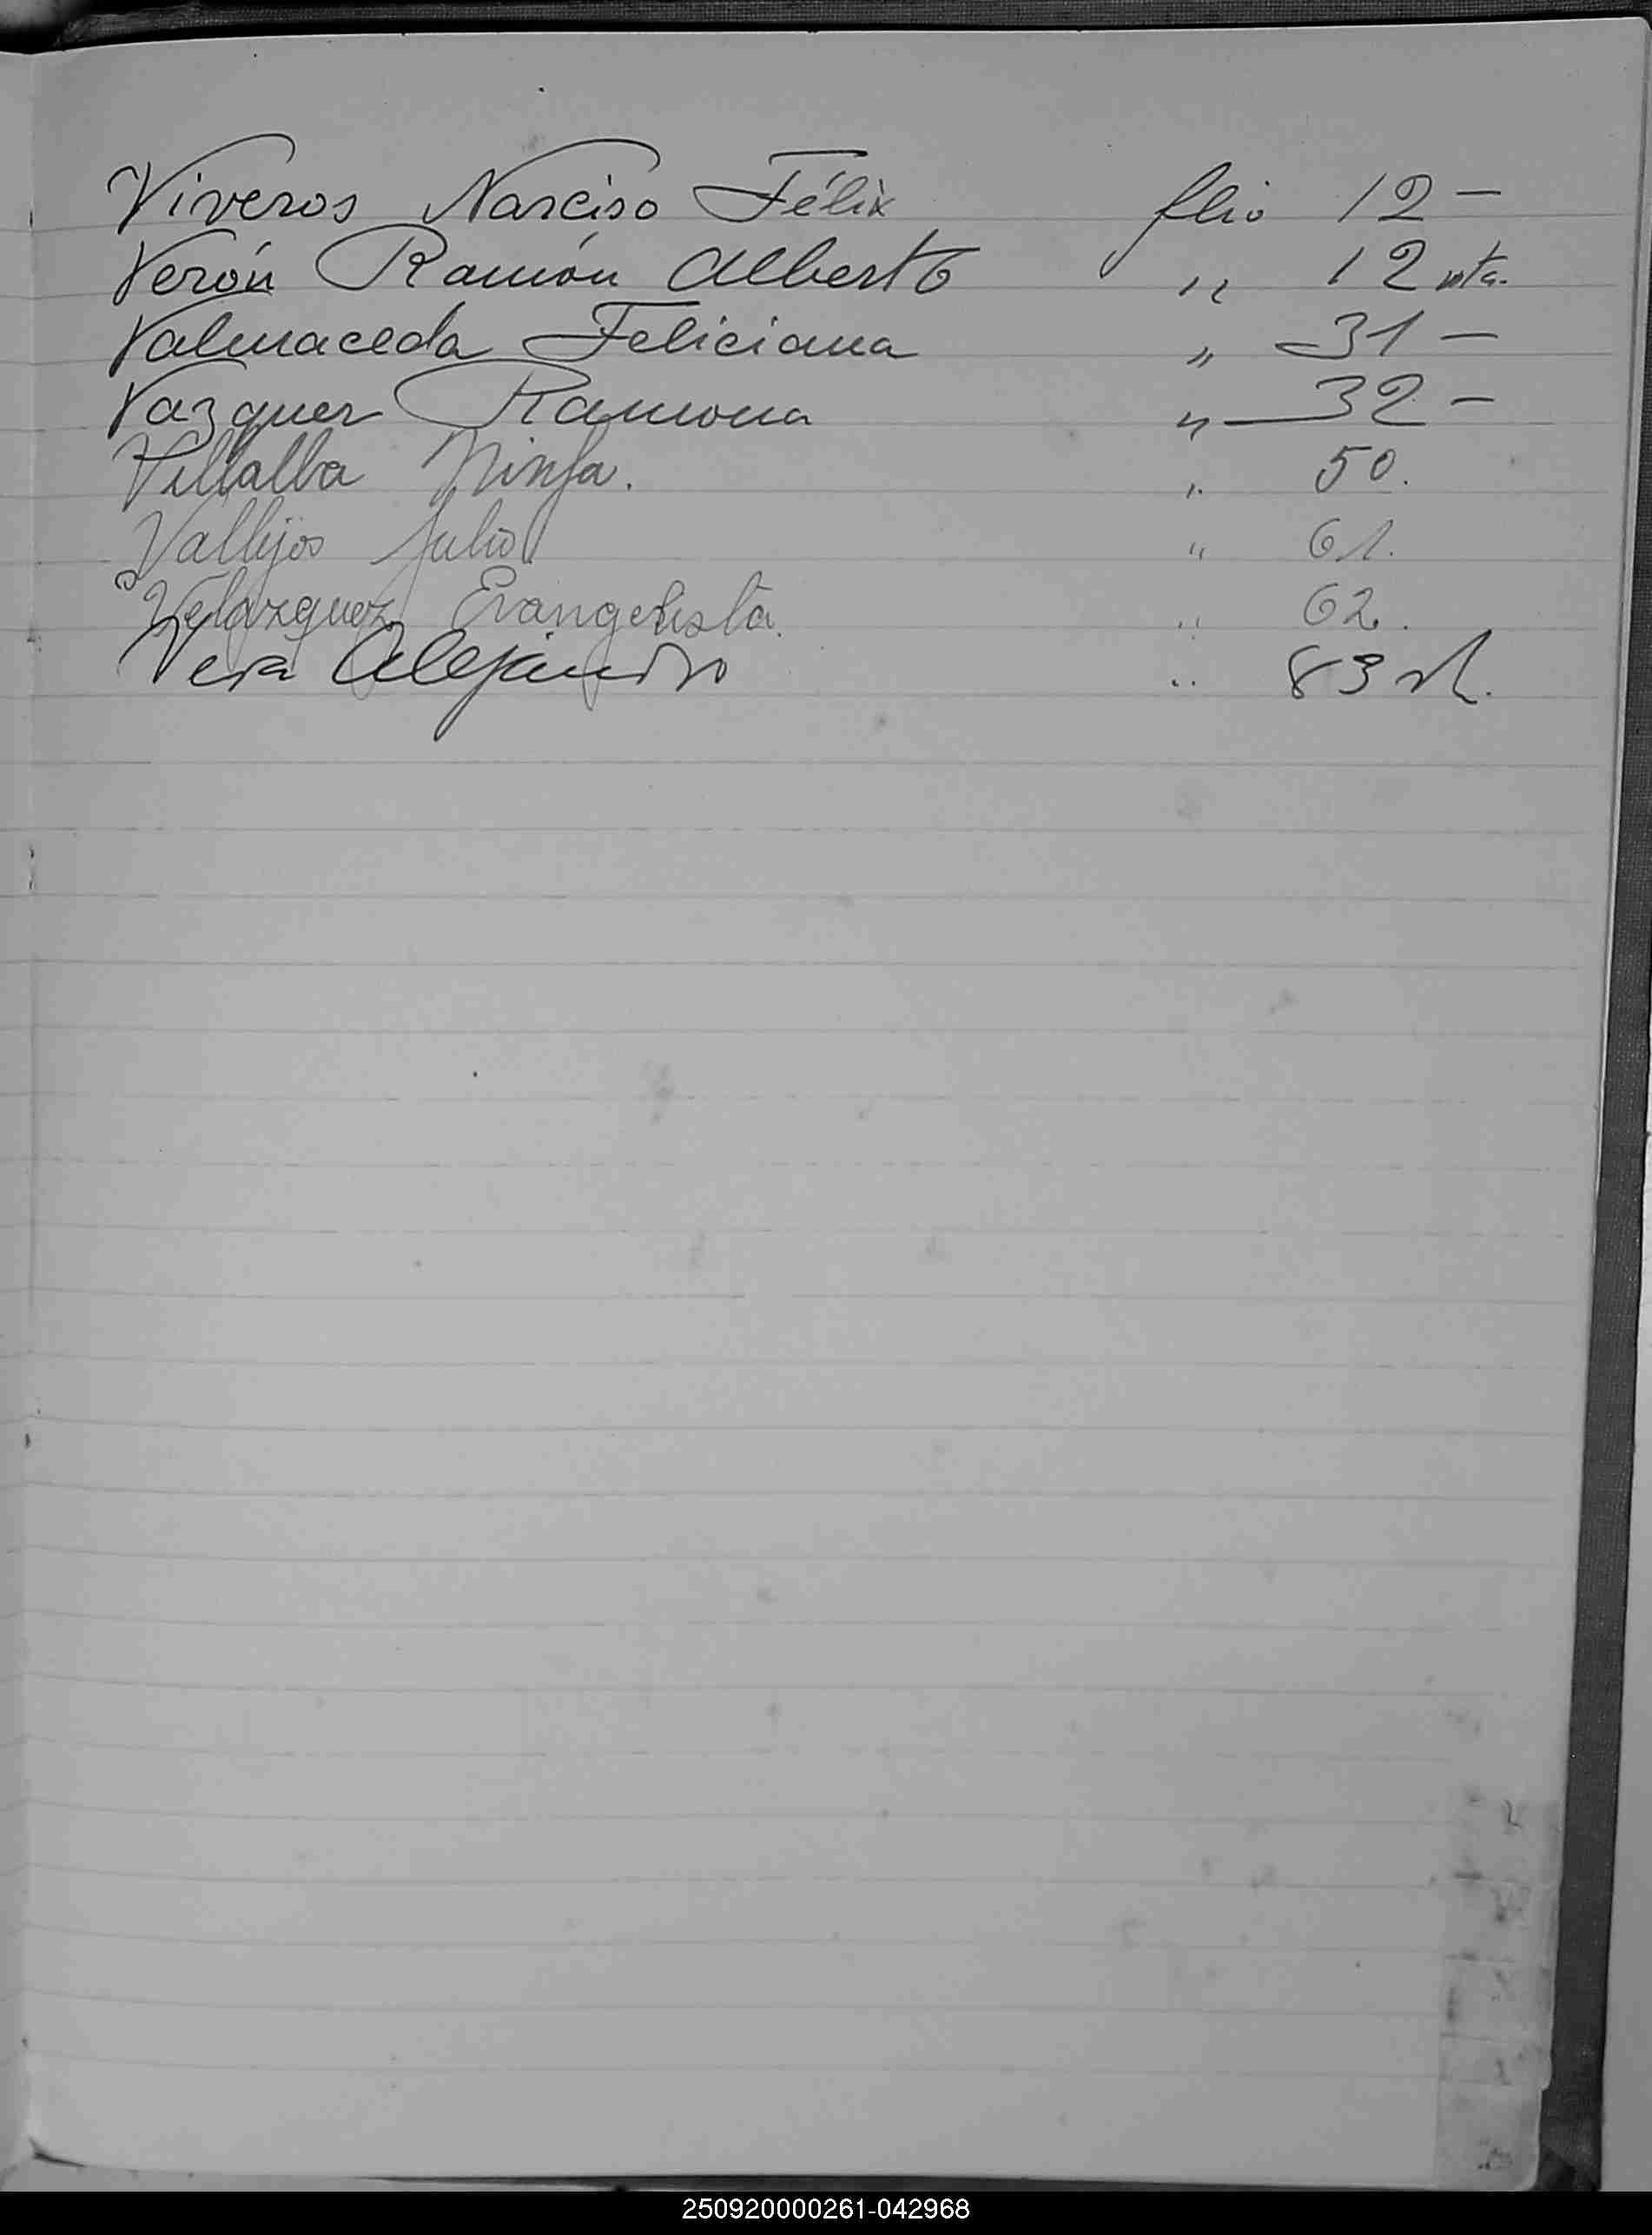 Viveros Narciso Félix flio 12 —
Verón Ramón Alberto " 12 vta.
Valmaceda Feliciana " 31 —
Vazquez Ramona " 32 —
Villalba Ninfa. " 50.
Vallejos Julio " 61.
Velazquez Evangelista. " 62.
Vera Alejandro " 83
250920000261-042968